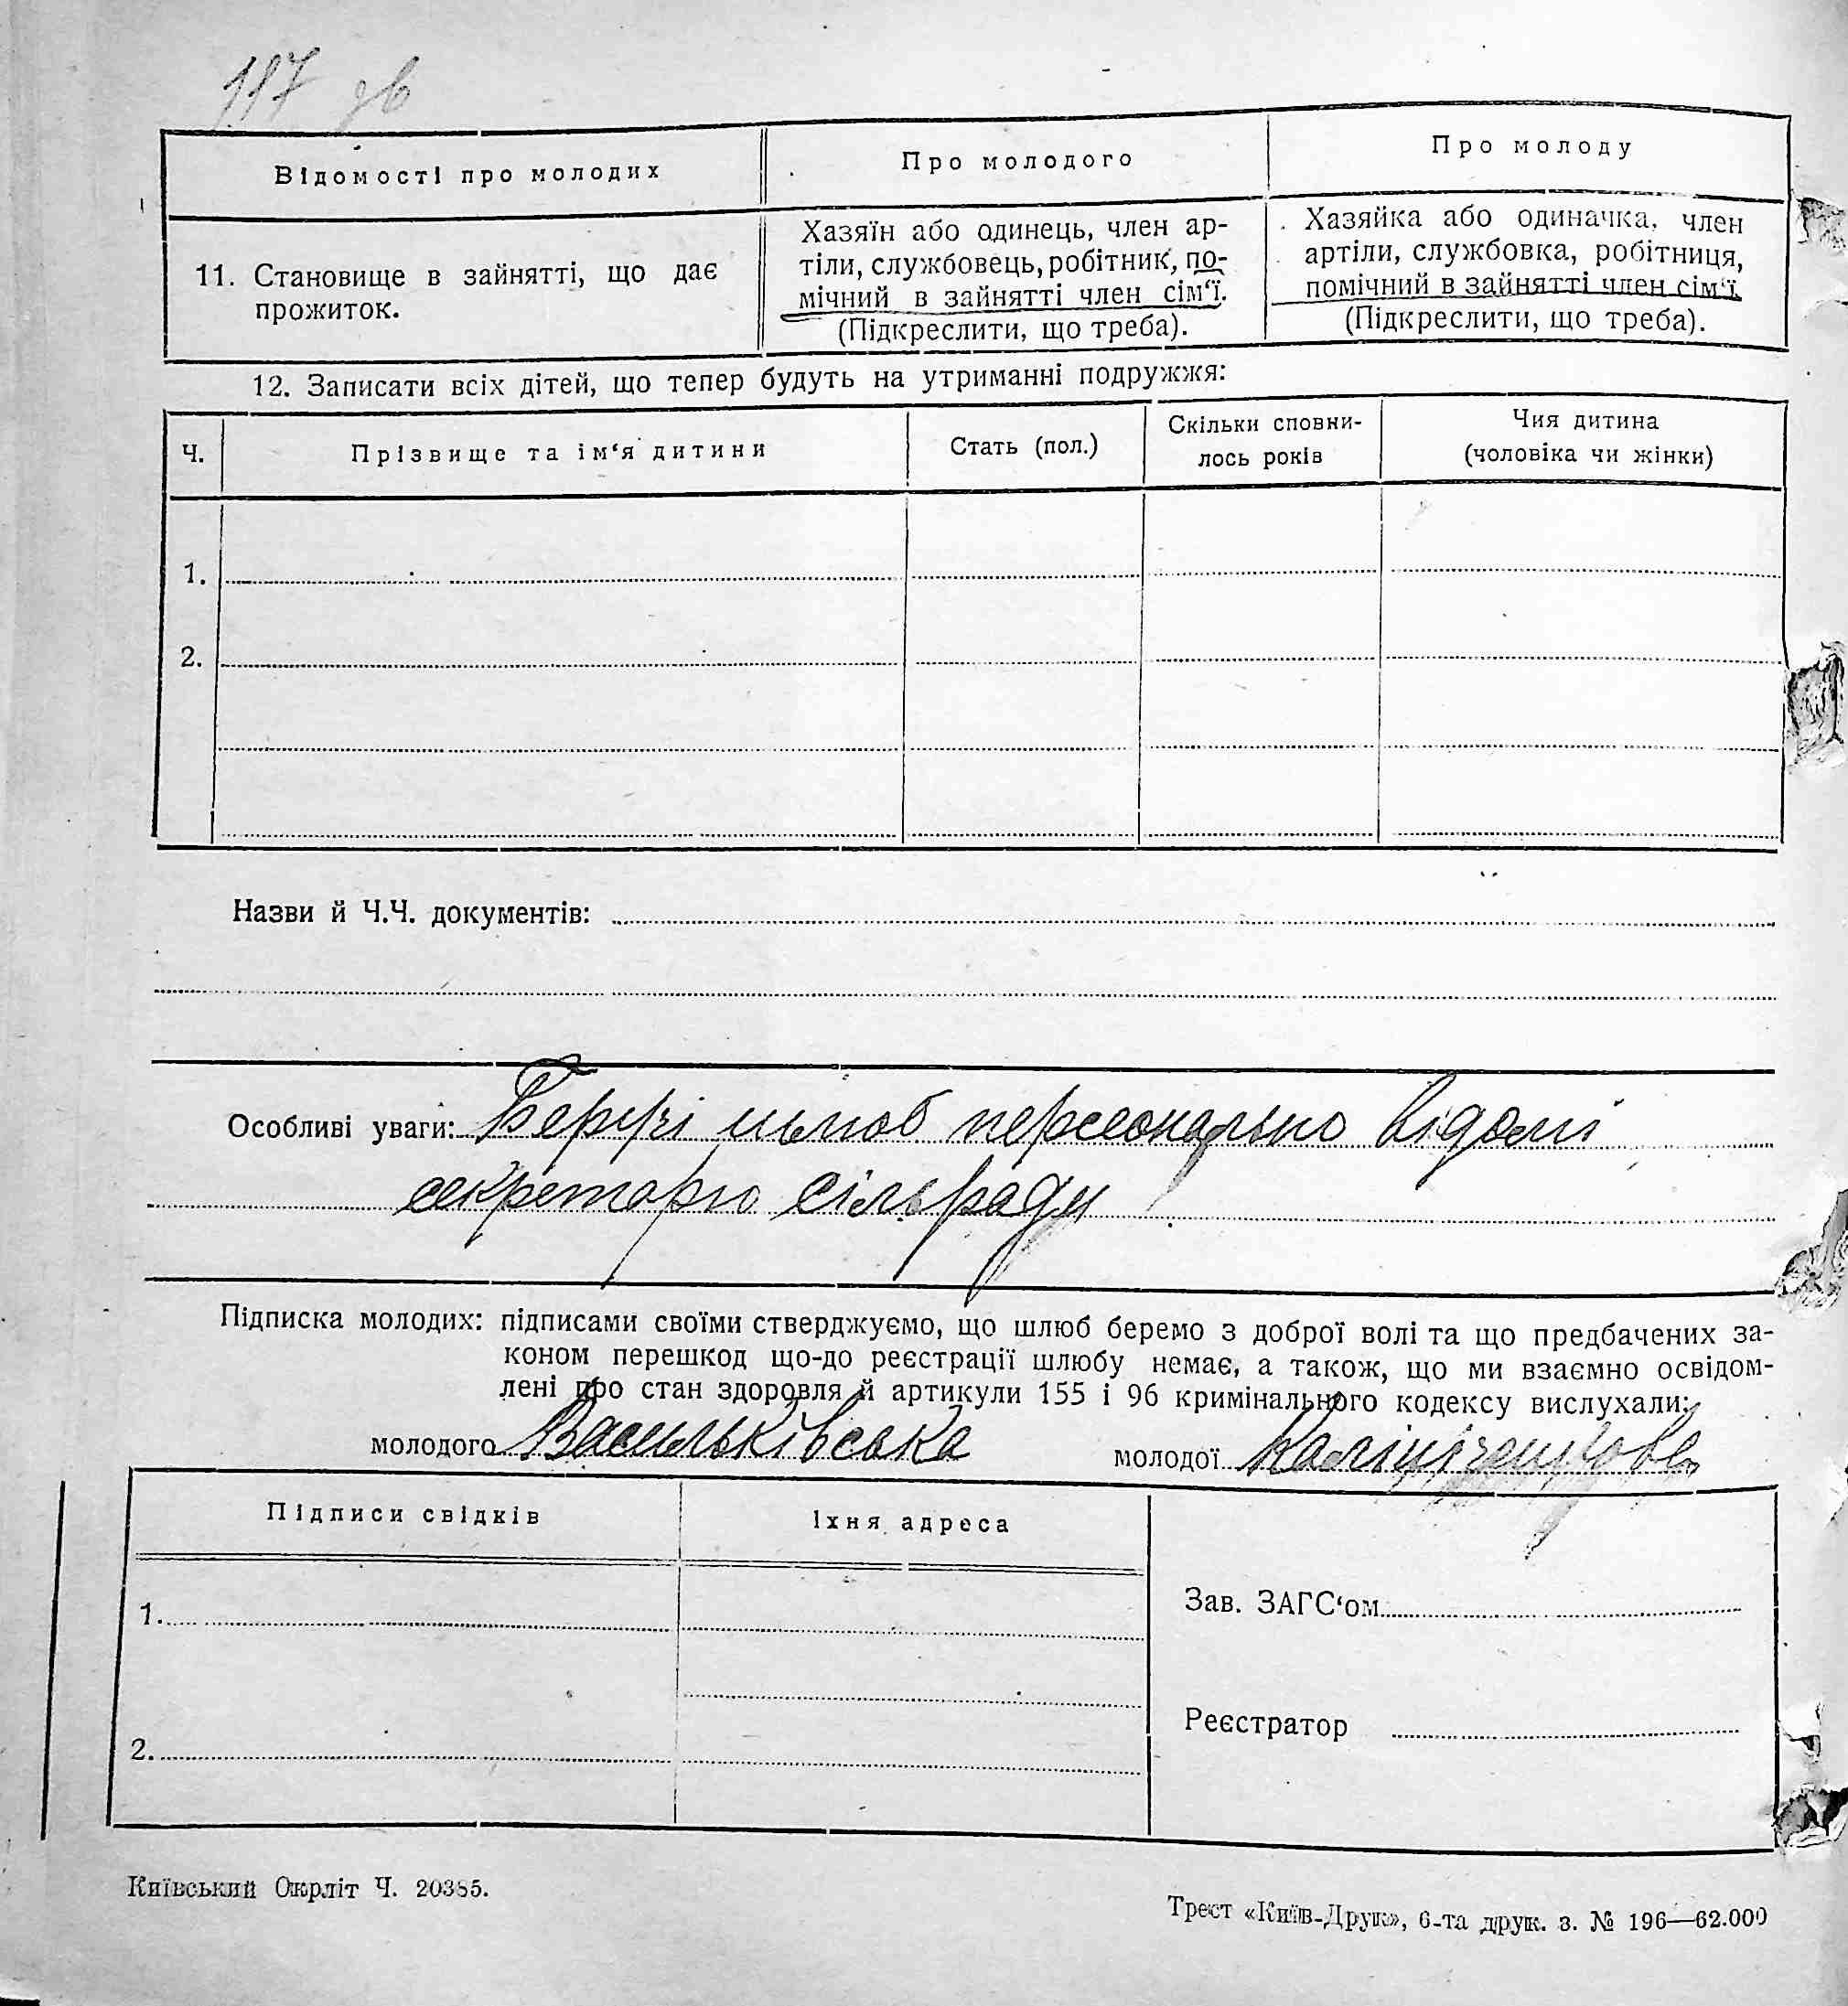 117 зв
Відомості про молодих
Про молодого
Про молоду
11. Становище в зайнятті, що дає
прожиток.
Хазяїн або одинець, член ар-
тіли, службовець, робітник, по-
мічний в зайнятті член сім‘ї.
(Підкреслити, що треба).
Хазяйка або одиначка, член
артіли, службовка, робітниця,
помічний в зайнятті член сім‘ї.
(Підкреслити, що треба).
12. Записати всіх дітей, що тепер будуть на утриманні подружжя:
Ч.
Прізвище та ім‘я дитини
Стать (пол.)
Скільки сповни-
лось років
Чия дитина
(чоловіка чи жінки)
1.
2.
Назви й Ч.Ч. документів:
Особливі уваги: Беручі шлюб персонально відомі
секретарю сільради
Підписка молодих: підписами своїми стверджуємо, що шлюб беремо з доброї волі та що предбачених за-
коном перешкод що-до реєстрації шлюбу немає, а також, що ми взаємно освідом-
лені про стан здоровля й артикули 155 і 96 кримінального кодексу вислухали:
молодого Васильківська молодої
Підписи свідків
Їхня адреса
1.
2.
Зав. ЗАГС‘ом
Реєстратор
Київський Окрліт Ч. 20385.
Трест «Київ-Друк», 6-та друк. з. № 196—62.000